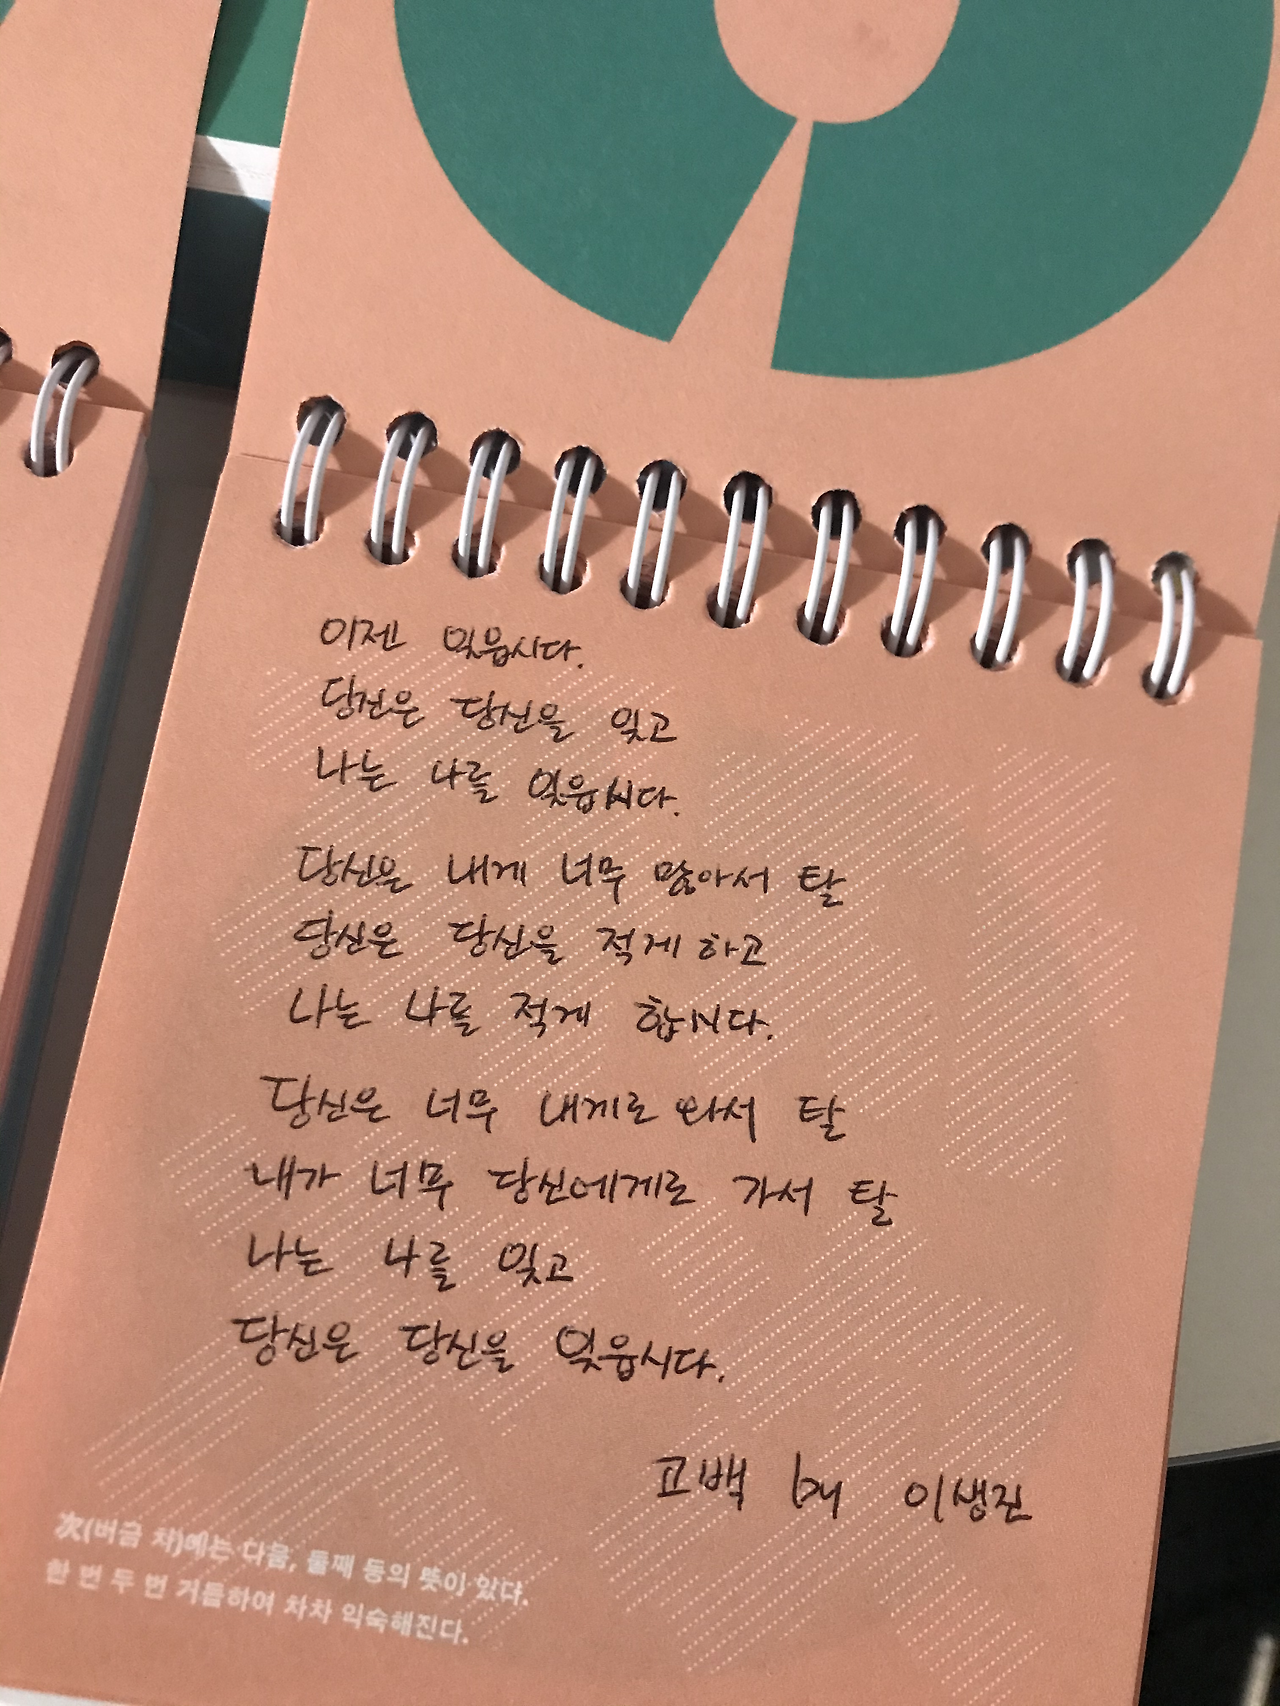 이젠 잊읍시다.
당신은 당신을 잊고
나는 나를 잊읍시다.
당신은 내게 너무 많아서 탈
당신은 당신을 적게 하고
나는 나를 적게 합니다.
당신은 너무 내게로 와서 탈
내가 너무 당신에게로 가서 탈
나는 나를 잊고
당신은 당신을 잊읍시다.
고백 by 이생진
次(버금 차)에는 다음, 둘째 등의 뜻이 있다.
한 번 두 번 거듭하여 차차 익숙해진다.